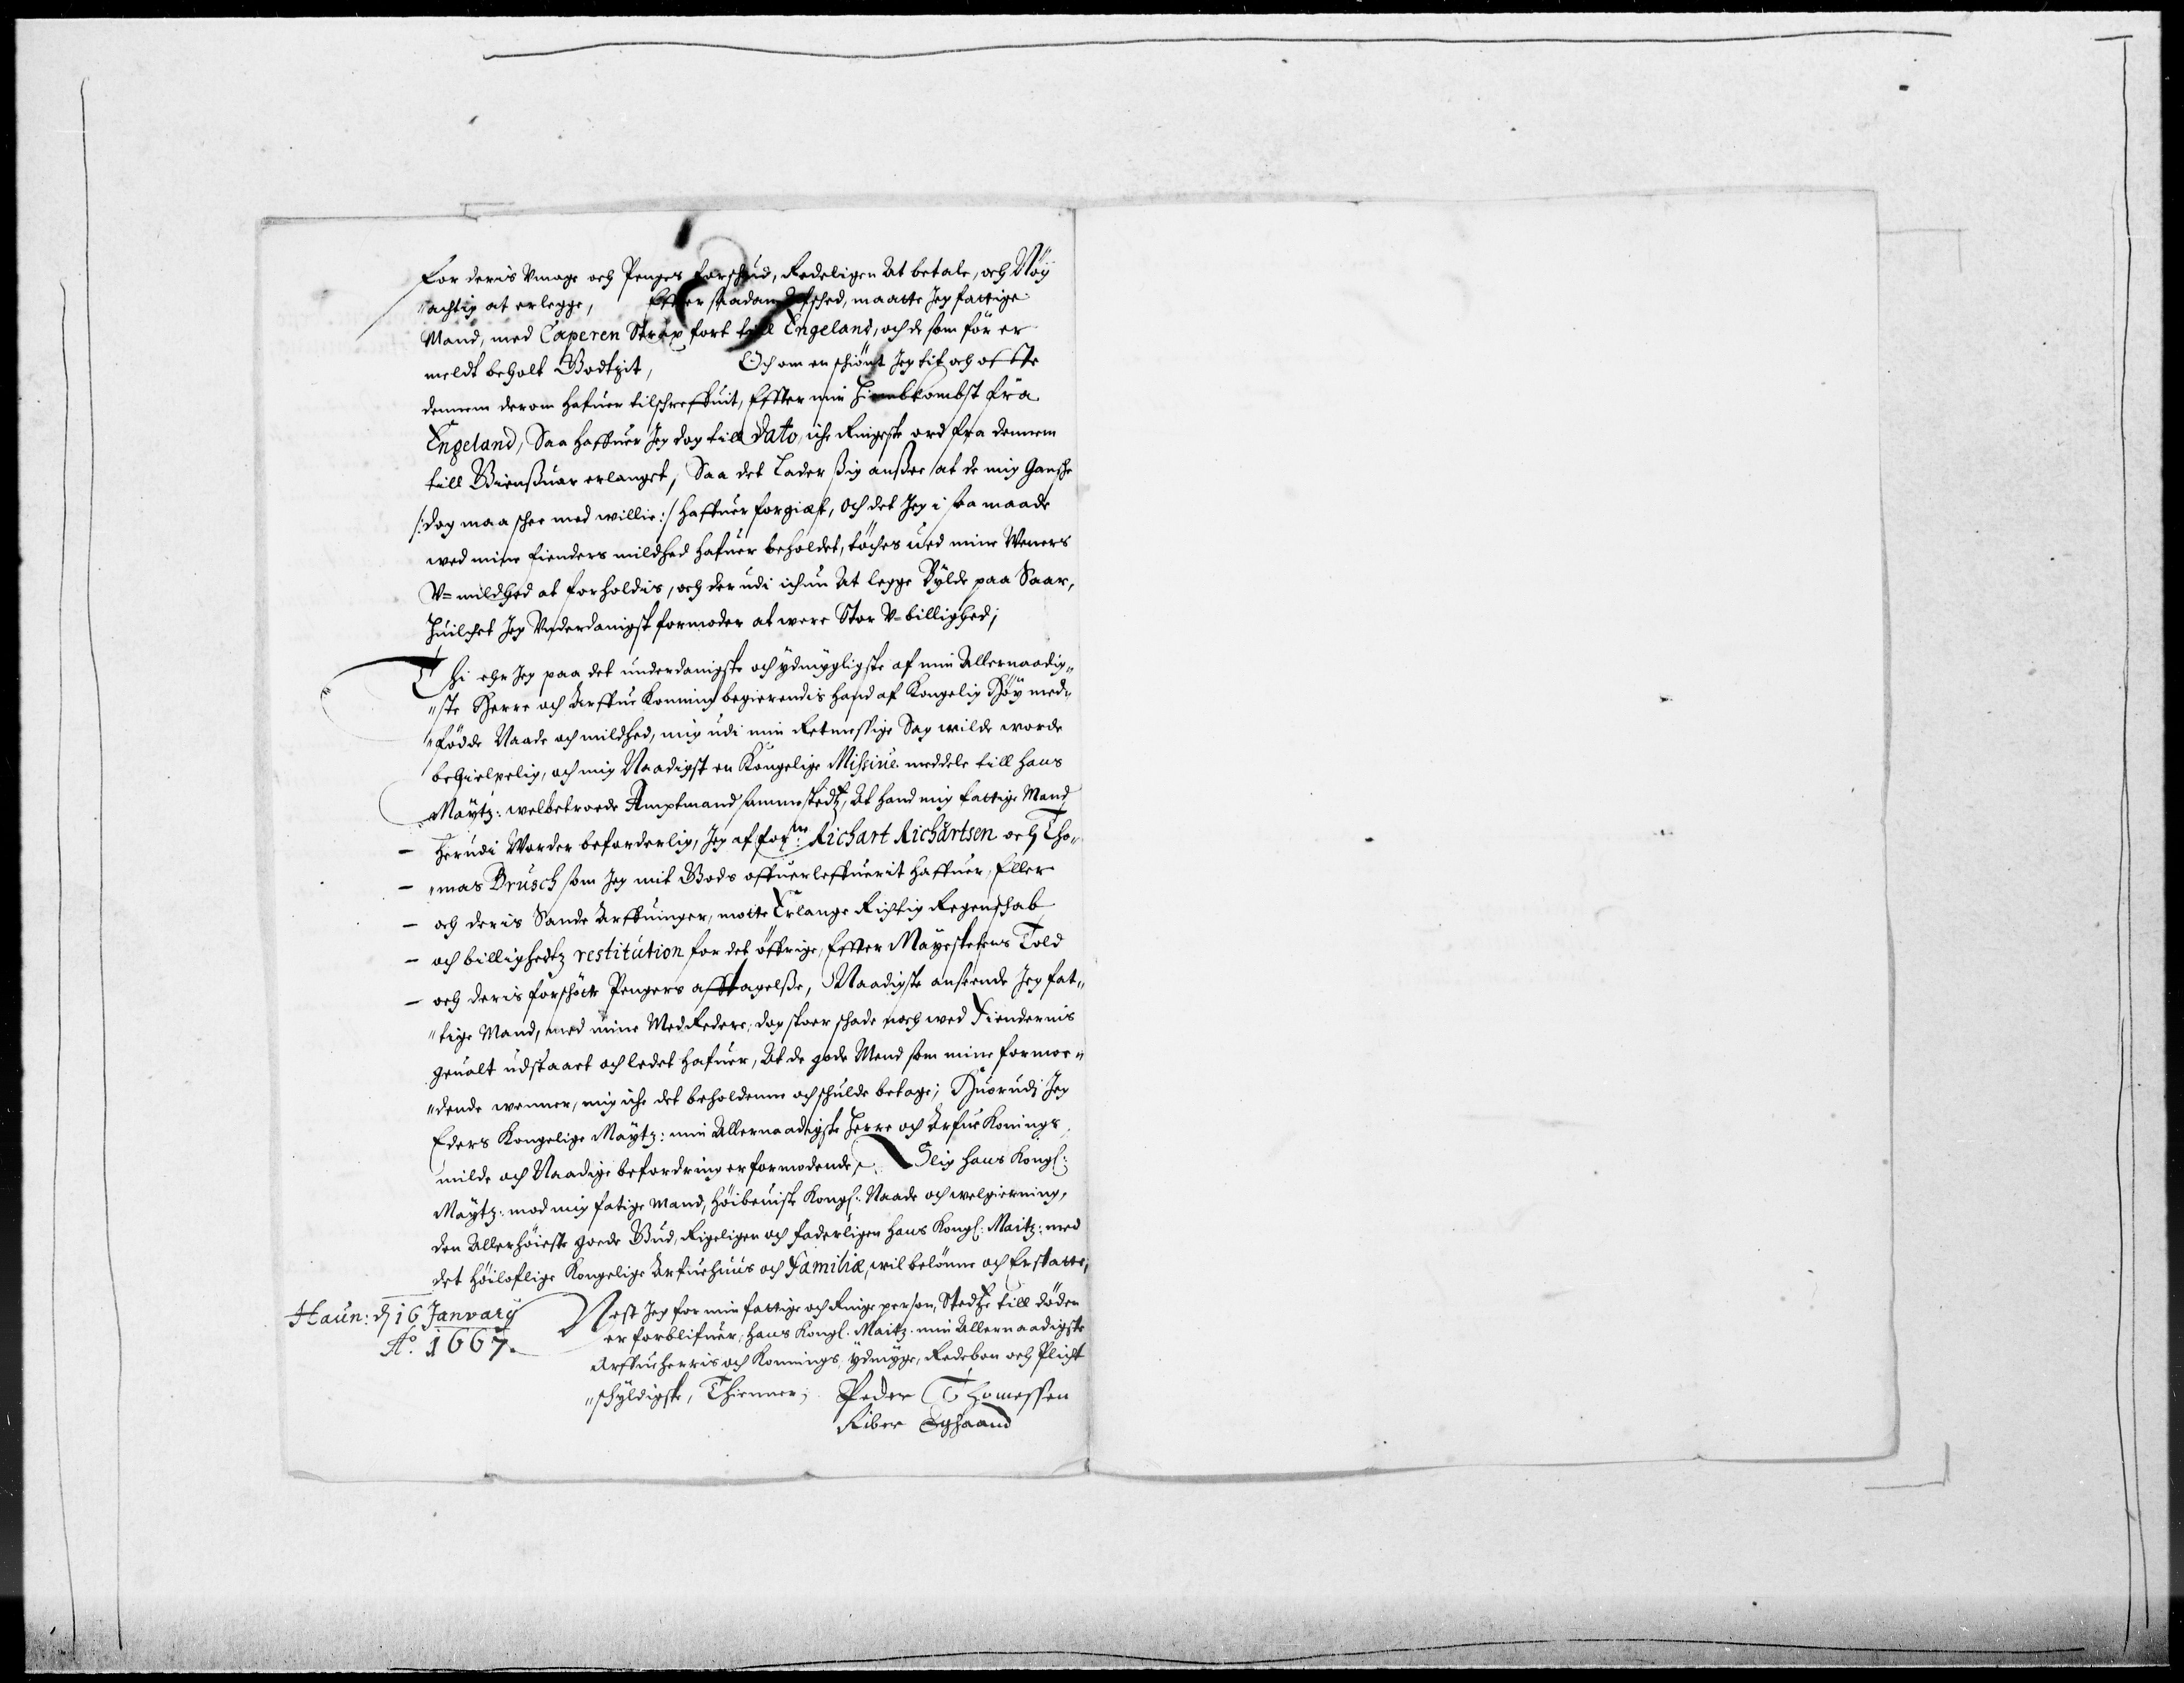 for deris Vmage och Penges forschud, Redeligen At betale, och Nöy
"achtig at erlegge, Effter saadan Afsched, maatte Jeg fattige
Mand, med Caperen Strax fort till Engeland, och de som för er
meldt beholt Bodtzit, Och om en schiönt Jeg tit och offte
dennem derom hafuer tilschreffuit, Effter min Hiembkombst fra
Engeland, Saa haffuer Jeg dog till Dato, iche Ringeste ord fra dennem
till Giensßuar erlanget, Saa det Lader ßig anßee at de mig Gansche
/: dog maa schee med willie :/ haffuer forgiæt, Och det Jeg i saa maade
wed mine fienders mildhed hafuer beholdet, töches wed mine Veners
V=mildhed at forholdis, och der udi ichun At legge Bylde paa Saar,
Huilchet Jeg Vnderdanigst formoder at were Stor V=billighed;
Thi ehr Jeg paa det underdanigste och ydmygligste af min Allernaadig"
"ste Herre och Arffue Konning begierendis hand af Kongelig Höy med"
"födde Naade och mildhed, mig udi min Retmessige Sag wilde worde
behielpelig, och mig Naadigst en Kongelige Missive meddele till hans
Maytz: welbetroede Amptmand sammestedtz, At hand mig fattige Mand
– herudi Worder beforderlig, Jeg af forne: Richart Richartsen och Tho"
– "mas Brusch som Jeg mit Gods offuerleffuerit haffuer, Eller
– och deris Sande Arffuinger, motte Erlange Richtig Regenschab
– och billighedtz restitution for det öffrige, Effter Mayestetens Told
– och deris forschötte Pengers afftagelße, Naadigste anseende Jeg fat"
"tige Mand, med mine Med Redere, dog stoer schade noch wed Fiendernis
geualt udstaaet och ledet hafuer, At de gode Mend som mine formee"
"dende wenner, mig iche det beholdenne och schulde betage; Huorudj Jeg
Eders Kongelige Maytz: min Allernaadigste Herre och Arfue Konings
milde och Naadige befordring er formodende, Slig hans Kongl:
Maytz: mod mig fatige Mand, höibeuiste Kongl: Naade och welgierning,
den Allerhöieste goede Gud, Rigeligen och faderligen hans Kongl: Maitz: med
det höiloflige Kongelige Arfuehuus och Familiæ, wil belönne och Erstatte,
Haun: d 16 Janvarÿ
Ao. 1667.
Nest Jeg for min fattige och Ringe person, Stedtze till döden
er forblifuer, hans Kongl. Maitz. min Allernaadigste
Arffueherris och Konnings, ydmyge, Redebon och Plicht
"schyldigste, Thienner; Peder Thomessen
Riber Eghaand